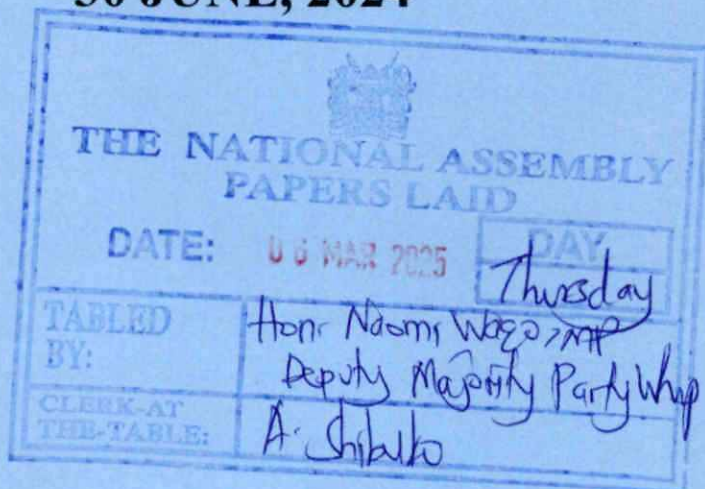 30 JUNE, 2024
THE NATIONAL ASSEMBLY
PAPERS LAID
DATE: 06 MAR 2025 DAY
Thursday
TABLED BY: Hon. Naomi Waqo, MP
Deputy Majority Party Whip
CLERK-AT THE-TABLE: A. Shibuko